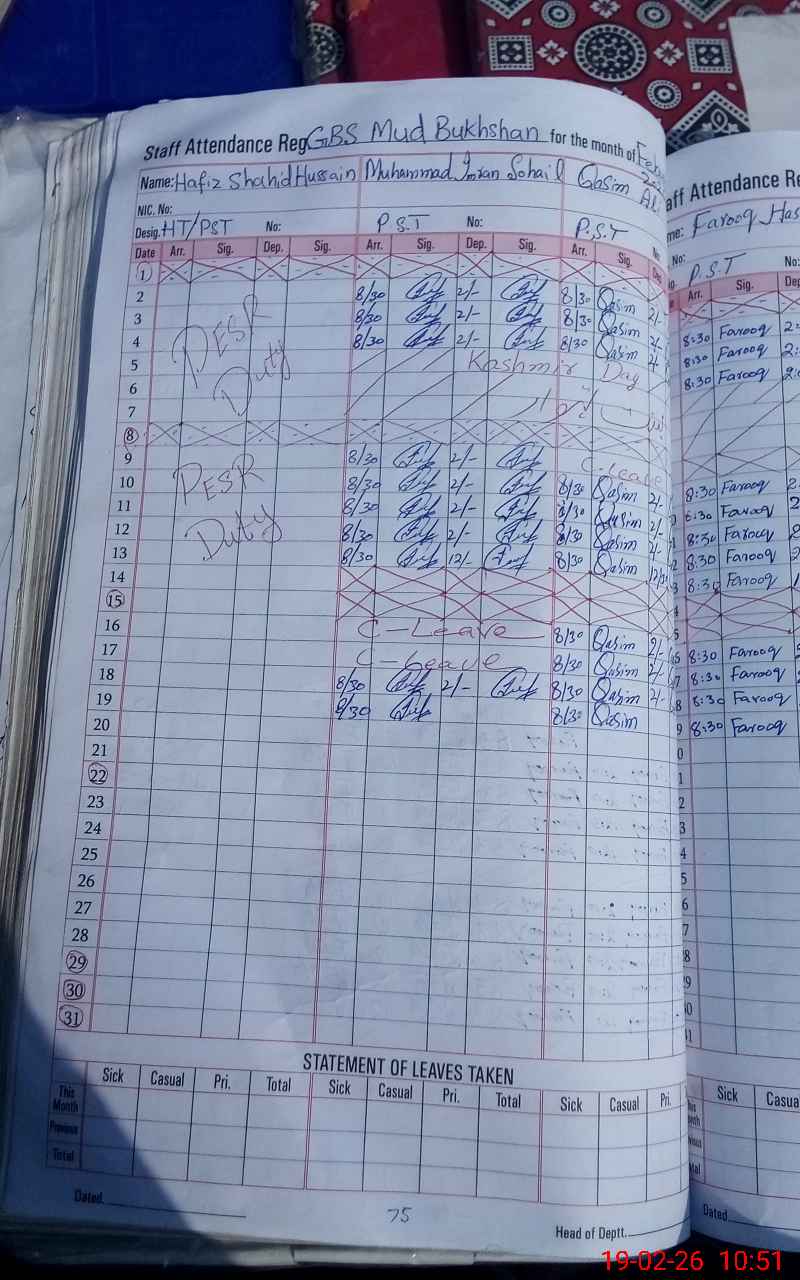 Staff Attendance Reg GBS Mud Bukhshan for the month of Feb
Name: Hafiz Shahid Hussain Muhammad Imran Sohail Qasim Al
NIC. No:
Desig. HT/PST No: P.S.T No: P.S.T
Date Arr. Sig. Dep. Sig. Arr. Sig. Dep. Sig. Arr. Sig.
1
2 8/30 2/- 8/30 Qasim 2/-
3 8/30 2/- 8/30 Qasim 2/-
4 8/30 2/- 8/30 Qasim 2/-
PESR Duty
5 Kashmir Day
6
7
8
9 8/30 2/- C-Leave
10 8/30 2/- 8/30 Qasim 2/-
PESR Duty
11 8/30 2/- 8/30 Qasim 2/-
12 8/30 2/- 8/30 Qasim 2/-
13 8/30 12/- 8/30 Qasim
14
15
16 C-Leave 8/30 Qasim 2/-
17 C-Leave 8/30 Qasim 2/-
18 8/30 2/- 8/30 Qasim 2/-
19 8/30 8/30 Qasim
20
21
22
23
24
25
26
27
28
29
30
31
STATEMENT OF LEAVES TAKEN
Sick Casual Pri. Total Sick Casual Pri. Total Sick Casual Pri.
This Month
Previous
Total
Dated
75
Head of Deptt.
aff Attendance Re
me: Farooq Has
No:
P.S.T No:
Arr. Sig. Dep
8:30 Farooq 2:
8:30 Farooq 2:
8:30 Farooq 2:
8:30 Farooq 2
8:30 Farooq 2
8:30 Farooq
8:30 Farooq
8:30 Farooq
8:30 Farooq
8:30 Farooq
8:30 Farooq
8:30 Farooq
Sick Casua
Dated
19-02-26 10:51